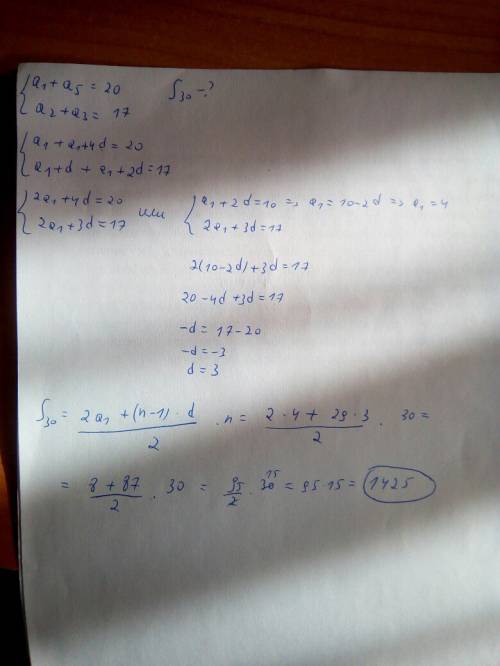 { a₁ + a₅ = 20    S₃₀ - ?
{ a₂ + a₃ = 17
{ a₁ + a₁ + 4d = 20
{ a₁ + d + a₁ + 2d = 17
{ 2a₁ + 4d = 20 или { a₁ + 2d = 10 => a₁ = 10 - 2d => a₁ = 4
{ 2a₁ + 3d = 17 { 2a₁ + 3d = 17
2(10 - 2d) + 3d = 17
20 - 4d + 3d = 17
-d = 17 - 20
-d = -3
d = 3
S₃₀ = (2a₁ + (n-1) · d)/2 · n = (2 · 4 + 29 · 3)/2 · 30 =
= (8 + 87)/2 · 30 = 95/2 · 30 15 = 95 · 15 = 1425